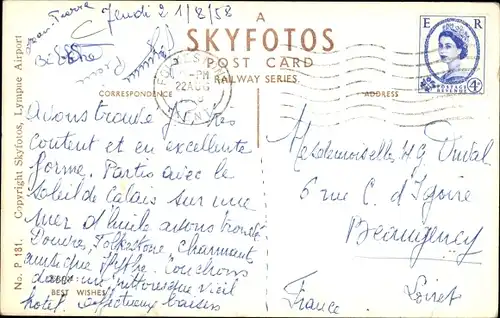 Jean Pierre
Jeudi 21/8/58
A
SKYFOTOS
POST CARD
RAILWAY SERIES.
CORRESPONDENCE
ADDRESS
E R
POSTAGE REVENUE
4D
PM
22 AUG
KENT
avons trouvé J. très
content et en excellente
forme. Partis avec le
soleil de Calais sur une
mer d'huile avons trouvé
Douvres, Folkestone, charmant
Hythe. Couchons
dans un pittoresque vieil
hotel. affectueux baisers
BEST WISHES
Mesdemoiselles
6 rue C. d'Igoire
Beaugency
Loiret
France
No. P 181. Copyright Skyfotos, Lympne Airport